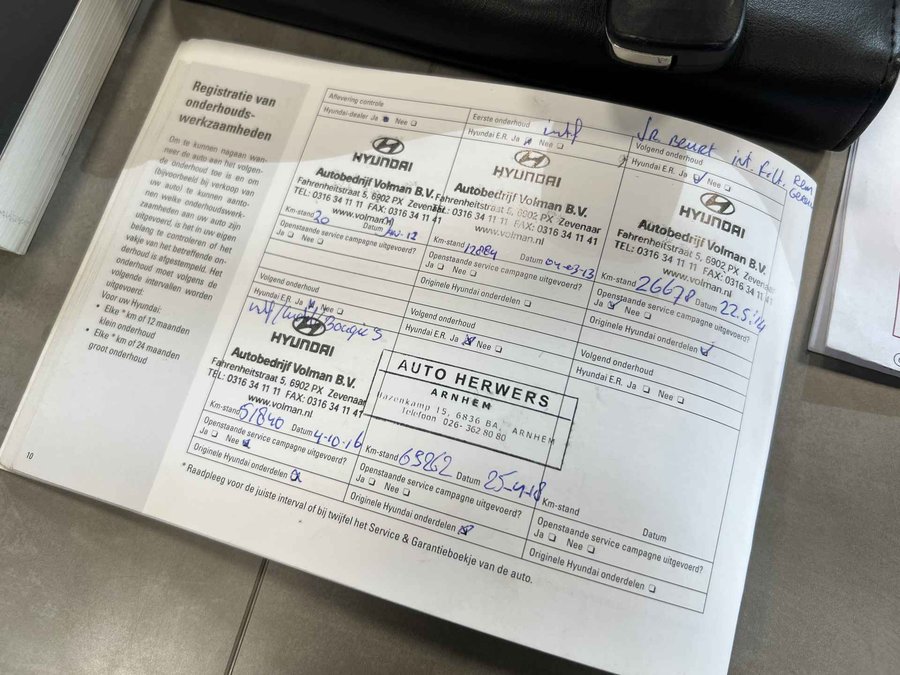 Registratie van
onderhouds-
werkzaamheden
Om te kunnen nagaan wan-
neer de auto aan het volgen-
de onderhoud toe is en om
(bijvoorbeeld bij verkoop van
uw auto) te kunnen aanto-
nen welke onderhoudswerk-
zaamheden aan uw auto zijn
uitgevoerd, is het in uw eigen
belang te controleren of het
vakje van het betreffende on-
derhoud is afgestempeld. Het
onderhoud moet volgens de
volgende intervallen worden
uitgevoerd:
Voor uw Hyundai:
• Elke * km of 12 maanden
klein onderhoud
• Elke * km of 24 maanden
groot onderhoud
10
Aflevering controle
Hyundai-dealer Ja Nee
HYUNDAI
Autobedrijf Volman B.V.
Fahrenheitstraat 5, 6902 PX Zevenaar
TEL: 0316 34 11 11 FAX: 0316 34 11 41
www.volman.nl
Km-stand 20 Datum
Openstaande service campagne uitgevoerd?
Ja Nee
Eerste onderhoud
Hyundai E.R. Ja Nee
HYUNDAI
Autobedrijf Volman B.V.
Fahrenheitstraat 5, 6902 PX Zevenaar
TEL: 0316 34 11 11 FAX: 0316 34 11 41
www.volman.nl
Km-stand 12884 Datum 04-03-13
Openstaande service campagne uitgevoerd?
Ja Nee
Originele Hyundai onderdelen
beurt int. Rem
Volgend onderhoud
Hyundai E.R. Ja Nee
HYUNDAI
Autobedrijf Volman B.V.
Fahrenheitstraat 5, 6902 PX Zevenaar
TEL: 0316 34 11 11 FAX: 0316 34 11 41
www.volman.nl
Km-stand 26678 Datum 22.5.'14
Openstaande service campagne uitgevoerd?
Ja Nee
Originele Hyundai onderdelen
Volgend onderhoud
Hyundai E.R. Ja Nee
Bougies
HYUNDAI
Autobedrijf Volman B.V.
Fahrenheitstraat 5, 6902 PX Zevenaar
TEL: 0316 34 11 11 FAX: 0316 34 11 41
www.volman.nl
Km-stand 51840 Datum 4-10-16
Openstaande service campagne uitgevoerd?
Ja Nee
Originele Hyundai onderdelen
Volgend onderhoud
Hyundai E.R. Ja Nee
AUTO HERWERS
ARNHEM
Hazenkamp 15, 6836 BA, ARNHEM
Telefoon 026-362 80 80
Km-stand 69262 Datum 25-4-18
Openstaande service campagne uitgevoerd?
Ja Nee
Originele Hyundai onderdelen
Volgend onderhoud
Hyundai E.R. Ja Nee
Km-stand Datum
Openstaande service campagne uitgevoerd?
Ja Nee
Originele Hyundai onderdelen
* Raadpleeg voor de juiste interval of bij twijfel het Service & Garantieboekje van de auto.